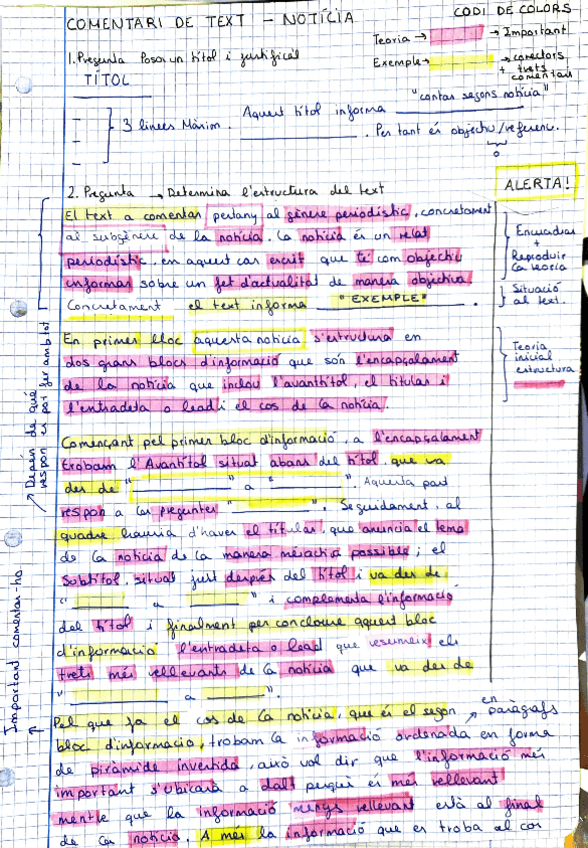 COMENTARI DE TEXT - NOTÍCIA
CODI DE COLORS
Teoria → → Important
Exemple → → conectors
+ trets
comentari
1. Pregunta Posar un títol i justificar
TÍTOL
3 línees Màxim.
Aquest títol informa "contar segons notícia"
. Per tant és objectiu/referenc.
2. Pregunta → Determina l'estructura del text
ALERTA!
El text a comentar pertany al gènere periodístic, concretament
al subgènere de la notícia. La notícia és un relat
periodístic, en aquest cas escrit que té com objectiu
informar sobre un fet d'actualitat de manera objectiva.
Concretament el text informa "EXEMPLE".
Encuadrar
+
Reproduir
la teoria
Situació
al text.
En primer lloc aquesta notícia s'estructura en
dos grans blocs d'informació que són l'encapçalament
de la notícia que inclou l'avantítol, el titular i
l'entradeta o lead i el cos de la notícia.
Teoria
inicial
estructura
Començant pel primer bloc d'informació, a l'encapçalament
trobam l'Avantítol situat abans del títol, que va
des de " a ". Aquesta part
respon a les preguntes " ". Seguidament, al
quadre hauria d'haver el titular, que anuncia el tema
de la notícia de la manera més achis possible; el
Subtítol, situat just després del títol i va des de
" a " i complementa l'informació
del títol i finalment per concloure aquest bloc
d'informació l'entradeta o lead que resumeix els
trets més rellevants de la notícia que va des de
" a ".
Depèn de què
respon es pot fer amb tot
Important comentar-ho
Pel que fa el cos de la notícia, que és el segon
en paràgrafs
bloc d'informació, trobam la informació ordenada en forma
de piràmide invertida, això vol dir que l'informació més
important s'ubicarà a dalt perquè és més rellevant
mentre que la informació menys rellevant està al final
de la notícia. A més la informació que es troba al cos